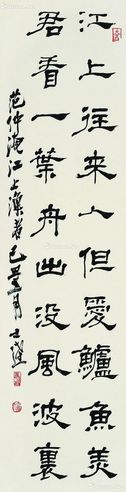 江上往来人但愛鱸魚美
君看一葉舟出没風波裏
范仲淹江上漁者